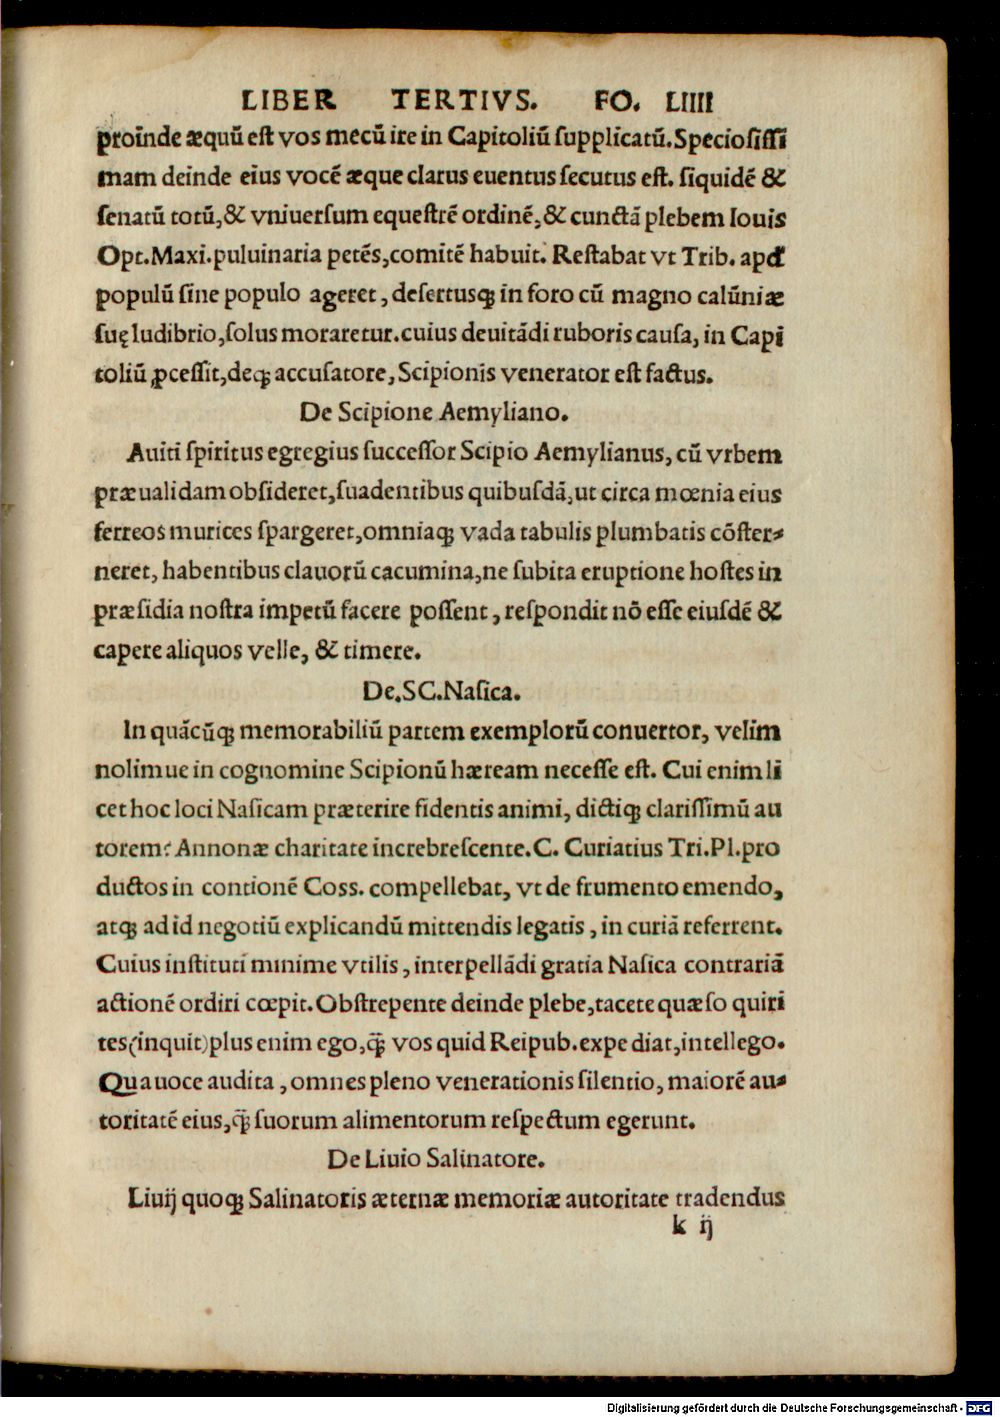 LIBER TERTIVS. FO. LIIII
proinde æquũ est vos mecũ ire in Capitoliũ supplicatũ. Speciosissi
mam deinde eius vocẽ æque clarus euentus secutus est. siquidẽ &
senatũ totũ, & vniuersum equestrẽ ordinẽ, & cunctã plebem Iouis
Opt. Maxi. puluinaria petẽs, comitẽ habuit. Restabat vt Trib. apđ
populũ sine populo ageret, desertusqꝫ in foro cũ magno calũniæ
suę ludibrio, solus moraretur. cuius deuitãdi ruboris causa, in Capi
toliũ ꝓcessit, deqꝫ accusatore, Scipionis venerator est factus.
De Scipione Aemyliano.
Auiti spiritus egregius successor Scipio Aemylianus, cũ vrbem
præualidam obsideret, suadentibus quibusdã, ut circa mœnia eius
ferreos murices spargeret, omniaqꝫ vada tabulis plumbatis cõster⸗
neret, habentibus clauorũ cacumina, ne subita eruptione hostes in
præsidia nostra impetũ facere possent, respondit nõ esse eiusdẽ &
capere aliquos velle, & timere.
De. SC. Nasica.
In quãcũqꝫ memorabiliũ partem exemplorũ conuertor, velim
nolimue in cognomine Scipionũ hæream necesse est. Cui enim li
cet hoc loci Nasicam præterire fidentis animi, dictiqꝫ clarissimũ au
torem? Annonæ charitate increbrescente. C. Curiatius Tri. Pl. pro
ductos in contionẽ Coss. compellebat, vt de frumento emendo,
atqꝫ ad id negotiũ explicandũ mittendis legatis, in curiã referrent.
Cuius instituti minime vtilis, interpellãdi gratia Nasica contrariã
actionẽ ordiri cœpit. Obstrepente deinde plebe, tacete quæso quiri
tes (inquit) plus enim ego, q̃ꝫ vos quid Reipub. expediat, intellego.
Qua uoce audita, omnes pleno venerationis silentio, maiorẽ au⸗
toritatẽ eius, q̃ꝫ suorum alimentorum respectum egerunt.
De Liuio Salinatore.
Liuij quoqꝫ Salinatoris æternæ memoriæ autoritate tradendus
k ij
Digitalisierung gefördert durch die Deutsche Forschungsgemeinschaft - DFG